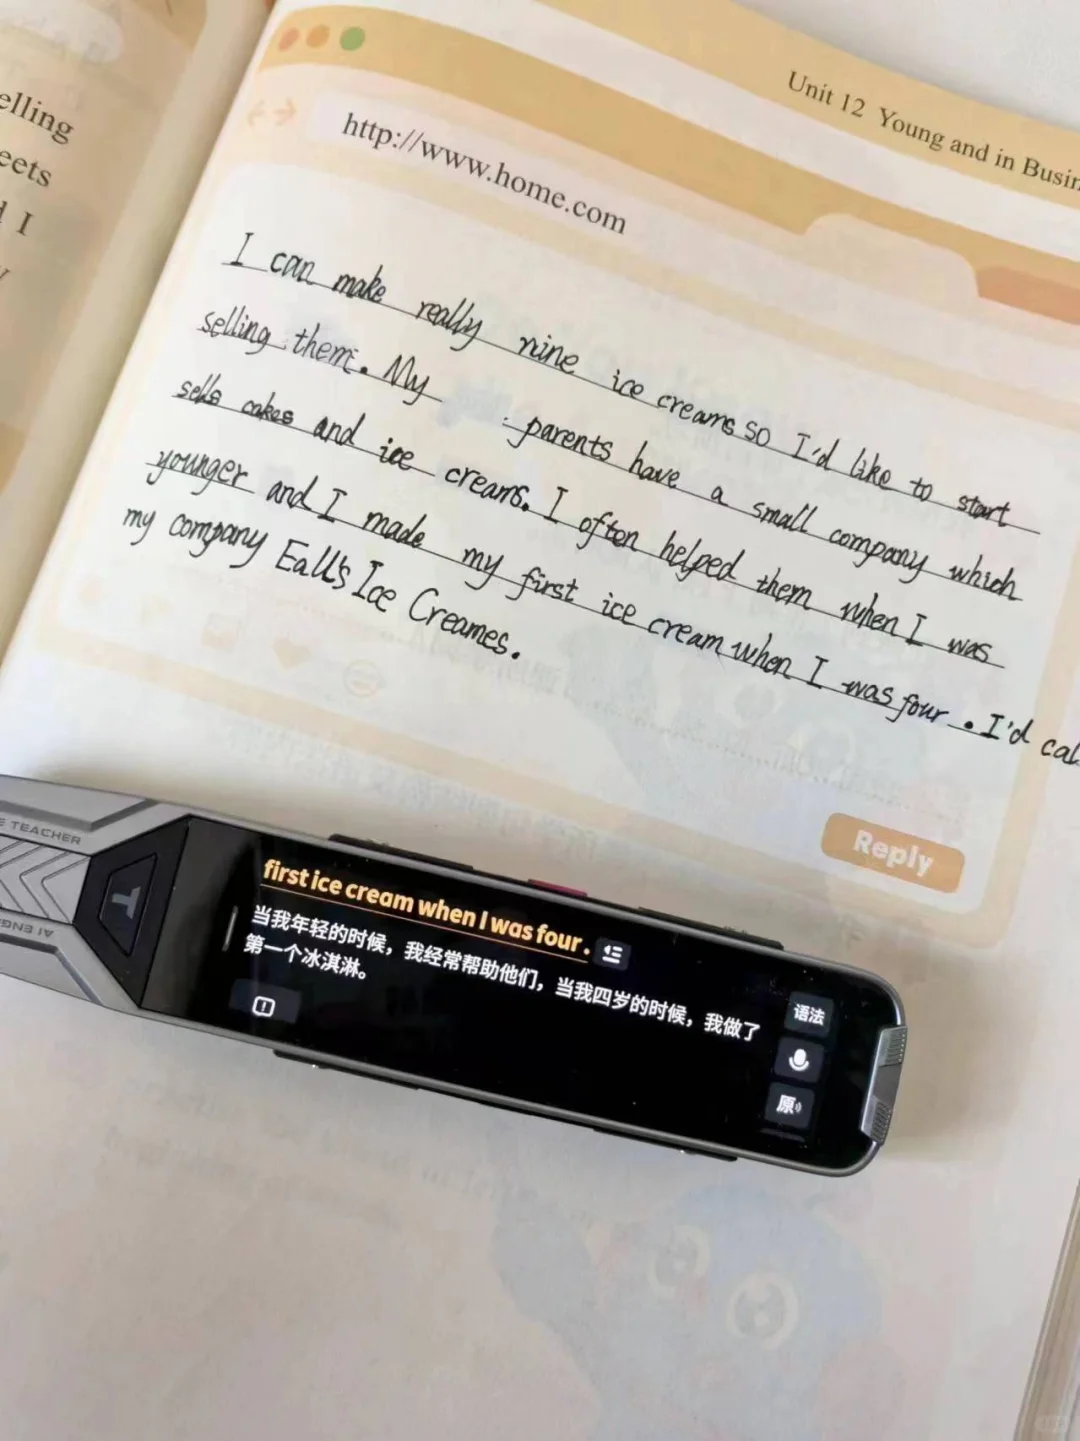 elling
eets
d I
Unit 12 Young and in Busin
http://www.home.com
I can make really nine ice creams so I'd like to start
selling them. My parents have a small company which
sells cakes and ice creams. I often helped them when I was
younger and I made my first ice cream when I was four. I'd cal
my company Eall's Ice Creames.
Reply
E TEACHER
T
AI ENG
first ice cream when I was four.
当我年轻的时候，我经常帮助他们，当我四岁的时候，我做了
第一个冰淇淋。
语法
原